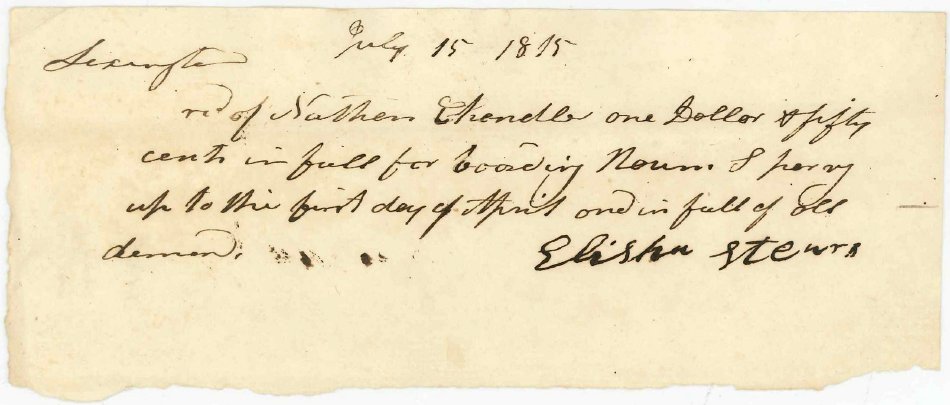 July 15 1815
Lexington
rcd of Nathan Chandler one Dollar & fifty
cents in full for boarding Naum Sperry
up to the first day of April and in full of all
demand.
Elisha Stewrs